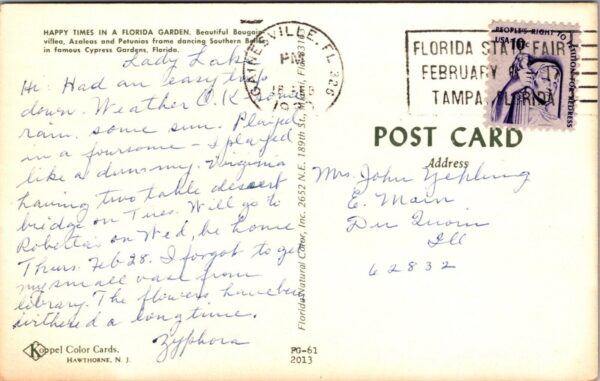 HAPPY TIMES IN A FLORIDA GARDEN. Beautiful Bougain-
villea, Azaleas and Petunias frame dancing Southern Belles
in famous Cypress Gardens, Florida.
Lady Lake
Hi: Had an easy trip
down. Weather O.K. some
rain, some sun. Played
in a foursome - I played
like a dummy. Virginia
having two table dessert
bridge on Tues. Will go to
Roberta's on Wed, be home
Thurs. Feb 28. I forgot to get
my small vase from
library. The flowers have been
withered a long time.
Zyphora
Koppel Color Cards.
HAWTHORNE, N. J.
Florida Natural Color, Inc. 2652 N.E. 189th St., Miami, Fla. 331
PG-61
2013
GAINESVILLE, FL 326
PM
FEB
FLORIDA STATE FAIR
FEBRUARY
TAMPA, FLORIDA
PEOPLE'S RIGHT TO PETITION FOR REDRESS
USA 10c
POST CARD
Address
Mrs. John Yehling
E. Main
Du Quoin
Ill
62832